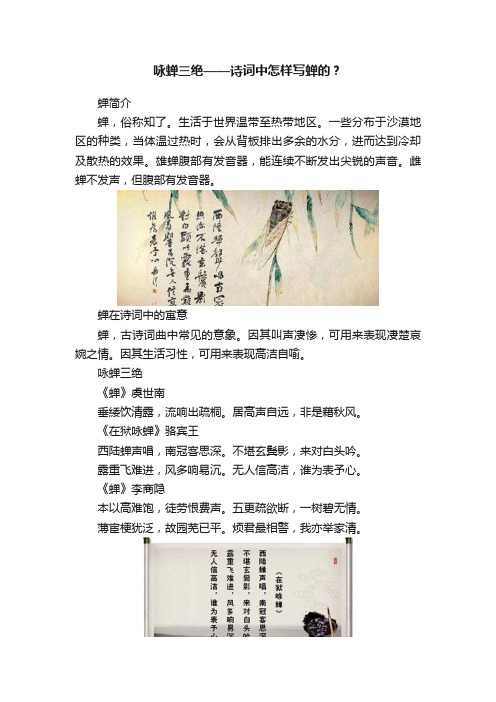 咏蝉三绝——诗词中怎样写蝉的？
蝉简介
蝉，俗称知了。生活于世界温带至热带地区。一些分布于沙漠地
区的种类，当体温过热时，会从背板排出多余的水分，进而达到冷却
及散热的效果。雄蝉腹部有发音器，能连续不断发出尖锐的声音。雌
蝉不发声，但腹部有发音器。
蝉在诗词中的寓意
蝉，古诗词曲中常见的意象。因其叫声凄惨，可用来表现凄楚哀
婉之情。因其生活习性，可用来表现高洁自喻。
咏蝉三绝
《蝉》虞世南
垂緌饮清露，流响出疏桐。居高声自远，非是藉秋风。
《在狱咏蝉》骆宾王
西陆蝉声唱，南冠客思深。不堪玄鬓影，来对白头吟。
露重飞难进，风多响易沉。无人信高洁，谁为表予心。
《蝉》李商隐
本以高难饱，徒劳恨费声。五更疏欲断，一树碧无情。
薄宦梗犹泛，故园芜已平。烦君最相警，我亦举家清。
《在狱咏蝉》
西陆蝉声唱，南冠客思深
不堪玄鬓影，来对白头吟
露重飞难进，风多响易沉
无人信高洁，谁为表予心